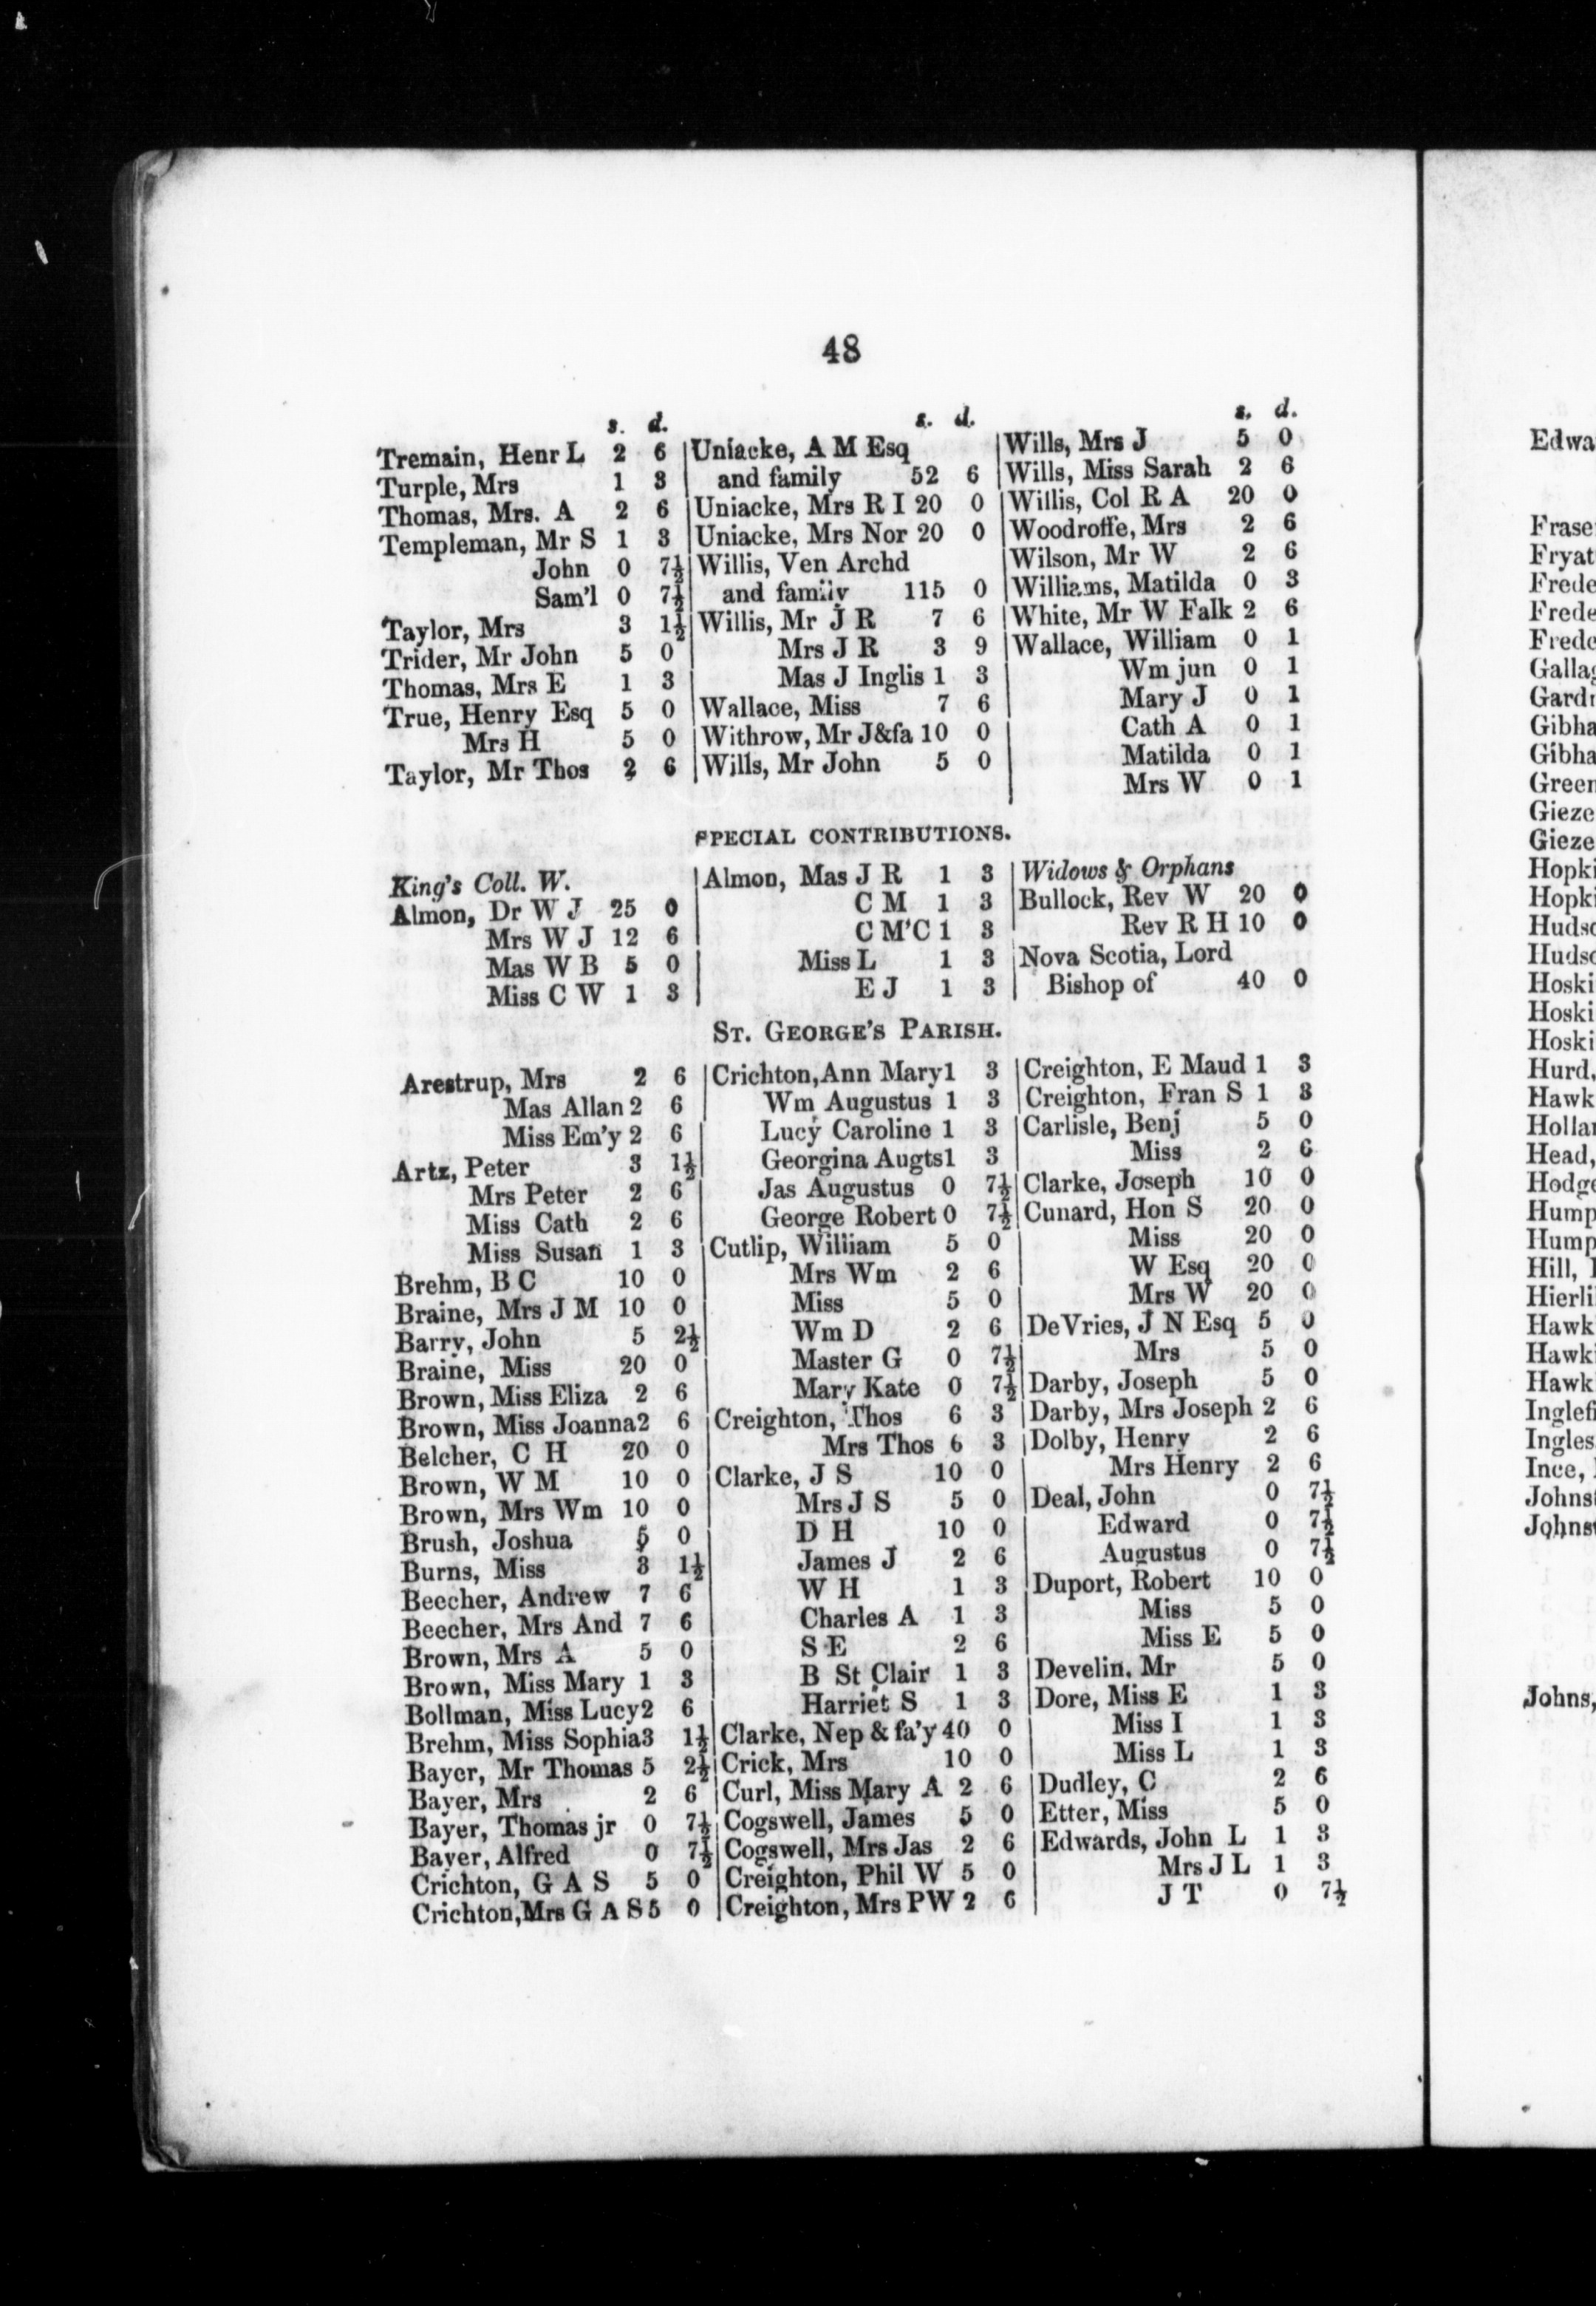 48
s. d.
Tremain, Henr L 2 6
Turple, Mrs 1 3
Thomas, Mrs. A 2 6
Templeman, Mr S 1 3
John 0 7½
Sam'l 0 7½
Taylor, Mrs 3 1½
Trider, Mr John 5 0
Thomas, Mrs E 1 3
True, Henry Esq 5 0
Mrs H 5 0
Taylor, Mr Thos 2 6
s. d.
Uniacke, A M Esq
and family 52 6
Uniacke, Mrs R I 20 0
Uniacke, Mrs Nor 20 0
Willis, Ven Archd
and family 115 0
Willis, Mr J R 7 6
Mrs J R 3 9
Mas J Inglis 1 3
Wallace, Miss 7 6
Withrow, Mr J&fa 10 0
Wills, Mr John 5 0
s. d.
Wills, Mrs J 5 0
Wills, Miss Sarah 2 6
Willis, Col R A 20 0
Woodroffe, Mrs 2 6
Wilson, Mr W 2 6
Williams, Matilda 0 3
White, Mr W Falk 2 6
Wallace, William 0 1
Wm jun 0 1
Mary J 0 1
Cath A 0 1
Matilda 0 1
Mrs W 0 1
SPECIAL CONTRIBUTIONS.
King's Coll. W.
Almon, Dr W J 25 0
Mrs W J 12 6
Mas W B 5 0
Miss C W 1 3
Almon, Mas J R 1 3
C M 1 3
C M'C 1 3
Miss L 1 3
E J 1 3
Widows & Orphans
Bullock, Rev W 20 0
Rev R H 10 0
Nova Scotia, Lord
Bishop of 40 0
ST. GEORGE'S PARISH.
Arestrup, Mrs 2 6
Mas Allan 2 6
Miss Em'y 2 6
Artz, Peter 3 1½
Mrs Peter 2 6
Miss Cath 2 6
Miss Susan 1 3
Brehm, B C 10 0
Braine, Mrs J M 10 0
Barry, John 5 2½
Braine, Miss 20 0
Brown, Miss Eliza 2 6
Brown, Miss Joanna 2 6
Belcher, C H 20 0
Brown, W M 10 0
Brown, Mrs Wm 10 0
Brush, Joshua 5 0
Burns, Miss 3 1½
Beecher, Andrew 7 6
Beecher, Mrs And 7 6
Brown, Mrs A 5 0
Brown, Miss Mary 1 3
Bollman, Miss Lucy 2 6
Brehm, Miss Sophia 3 1½
Bayer, Mr Thomas 5 2½
Bayer, Mrs 2 6
Bayer, Thomas jr 0 7½
Bayer, Alfred 0 7½
Crichton, G A S 5 0
Crichton, Mrs G A S 5 0
Crichton, Ann Mary 1 3
Wm Augustus 1 3
Lucy Caroline 1 3
Georgina Augts 1 3
Jas Augustus 0 7½
George Robert 0 7½
Cutlip, William 5 0
Mrs Wm 2 6
Miss 5 0
Wm D 2 6
Master G 0 7½
Mary Kate 0 7½
Creighton, Thos 6 3
Mrs Thos 6 3
Clarke, J S 10 0
Mrs J S 5 0
D H 10 0
James J 2 6
W H 1 3
Charles A 1 3
S E 2 6
B St Clair 1 3
Harriet S 1 3
Clarke, Nep & fa'y 40 0
Crick, Mrs 10 0
Curl, Miss Mary A 2 6
Cogswell, James 5 0
Cogswell, Mrs Jas 2 6
Creighton, Phil W 5 0
Creighton, Mrs PW 2 6
Creighton, E Maud 1 3
Creighton, Fran S 1 3
Carlisle, Benj 5 0
Miss 2 6
Clarke, Joseph 10 0
Cunard, Hon S 20 0
Miss 20 0
W Esq 20 0
Mrs W 20 0
DeVries, J N Esq 5 0
Mrs 5 0
Darby, Joseph 5 0
Darby, Mrs Joseph 2 6
Dolby, Henry 2 6
Mrs Henry 2 6
Deal, John 0 7½
Edward 0 7½
Augustus 0 7½
Duport, Robert 10 0
Miss 5 0
Miss E 5 0
Develin, Mr 5 0
Dore, Miss E 1 3
Miss I 1 3
Miss L 1 3
Dudley, C 2 6
Etter, Miss 5 0
Edwards, John L 1 3
Mrs J L 1 3
J T 0 7½
Edwa
Frase
Fryat
Frede
Frede
Frede
Gallag
Gardn
Gibha
Gibha
Green
Gieze
Gieze
Hopki
Hopki
Hudso
Hudso
Hoski
Hoski
Hoski
Hurd,
Hawk
Hollan
Head,
Hodge
Hump
Hump
Hill,
Hierli
Hawk
Hawk
Hawk
Inglefi
Ingles
Ince,
Johnst
Johnst
Johns,